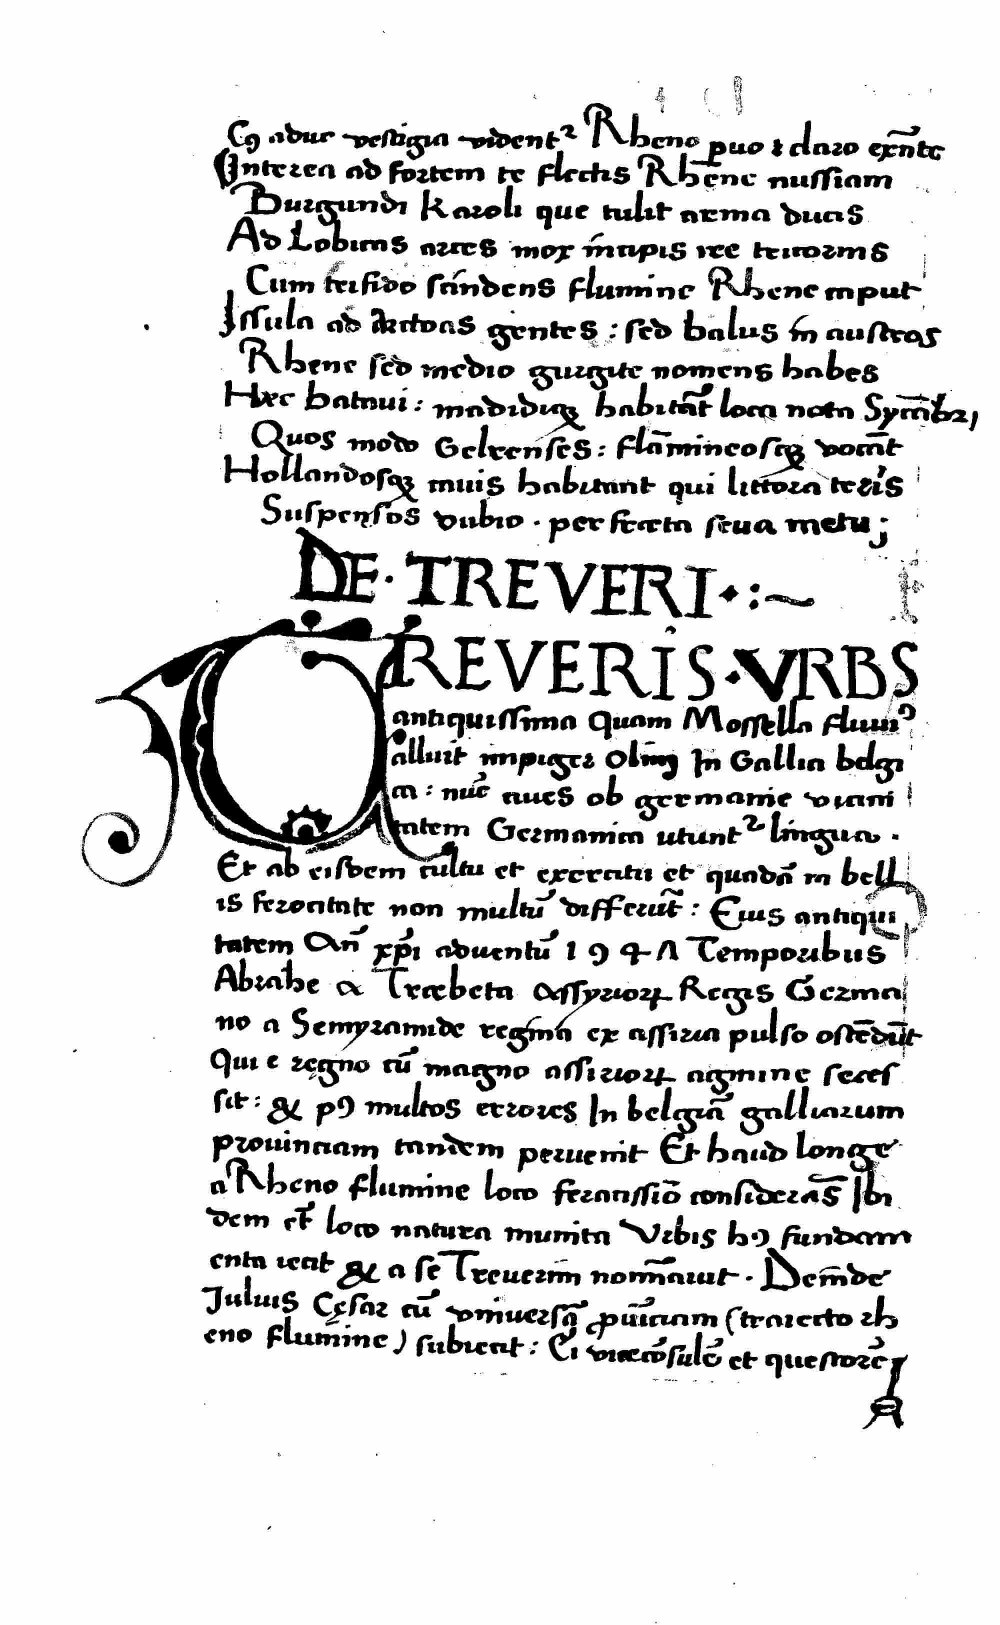 Cꝰ aduc vestigia vident᷑ Rheno puo & claro exn̄te
Interea ad fortem te flectis Rhene nussiam
Burgundi Karoli que tulit arma ducis
Ad Lobicas arces mox in̄cipis ire tricornis
Cum trifido scindens flumine Rhene caput
Issula ad Arctoas gentes : sed balus in̄ austros
Rhene sed medio gurgite nomens habes
Hæc bataui : madidiqꝫ habitāt loca nota Sycābri
Quos modo Gelrenses : flāmineosqꝫ vocāt
Hollandosqꝫ habitant qui littora teris
Suspensos dubio . per freta seua metu ;
DE · TREVERI · : ~
TREVERIS · VRBS
antiquissima Quam Mossella fluuiꝰ
alluit impiger Olim In Gallia belgi
ca : nūc ciues ob germanie vicini
tatem Germanica utunt᷑ lingua .
Et ab eisdem cultu et exercitu et quadā in bell
is ferocitate non multū differūt : Eius antiqui
tatem An̄ xp̄i aduentū 1947 Temporibus
Abrahe & Træbeta Assyrioꝝ Regis Germa
no a Semyramide regina ex assiria pulso ostēdūt
Qui e regno cū magno assirioꝝ agmine seces
sit : & pꝰ multos errores In belgiā galliarum
prouinciam tandem peruenit Et haud longe
a Rheno flumine loco feracissīo considerās Ibi
dem et loco natura munita Vrbis hꝰ fundam
enta iecit & a se Treuerim nomīauit . Deinde
Julius Cęsar cū vniuersā puīciam (traiecto rh
eno flumine) subiecit : Ei vicecōsulē et questorē